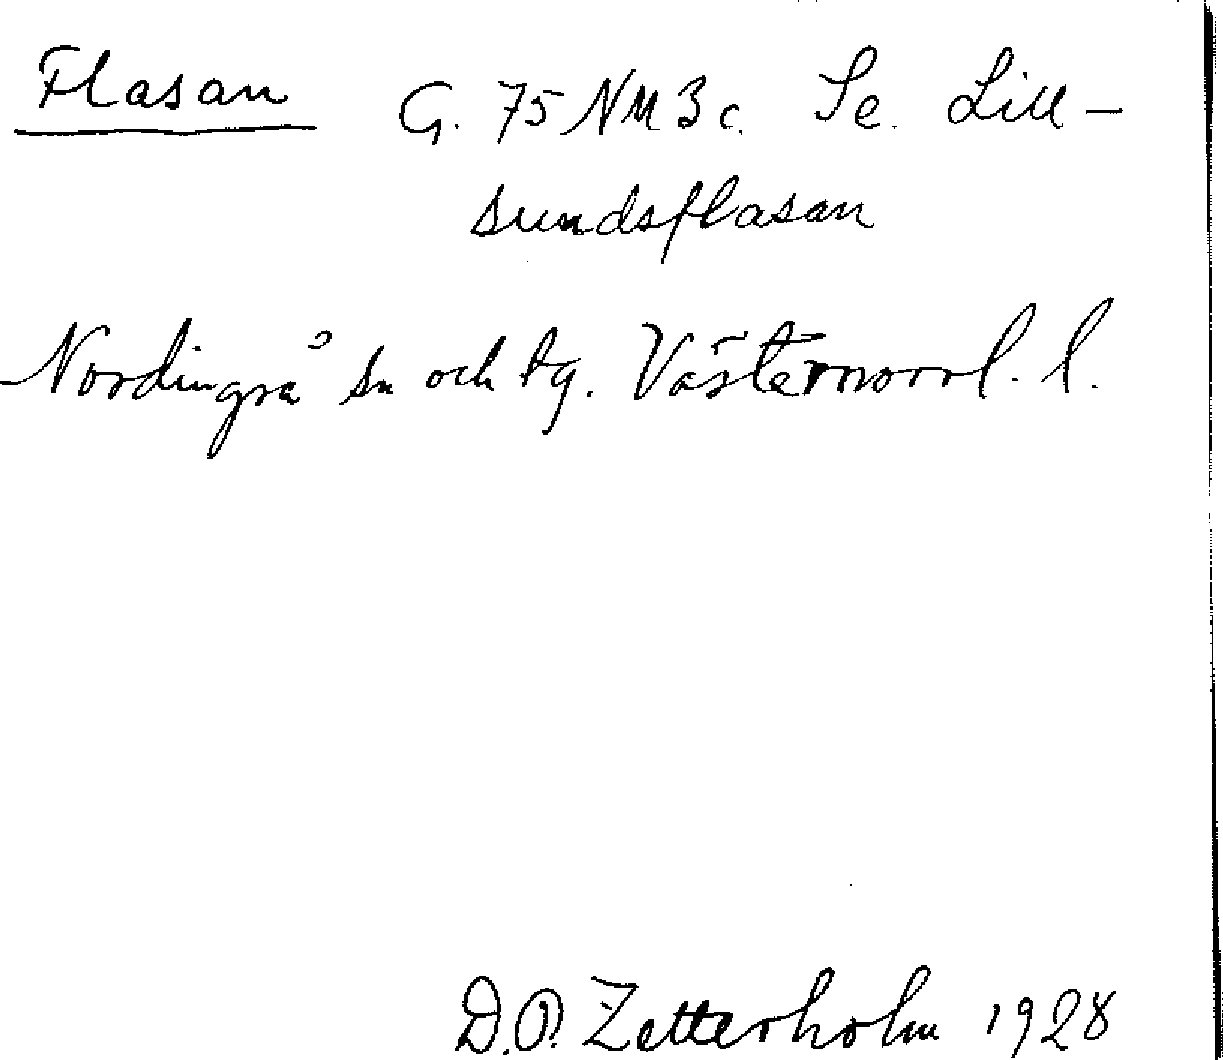 Flasan G. 75 NM 3 c. Se. Lill-
sundsflasan
Nordingrå sn och tg. Västernorrl. l.
D.O. Zetterholm 1928